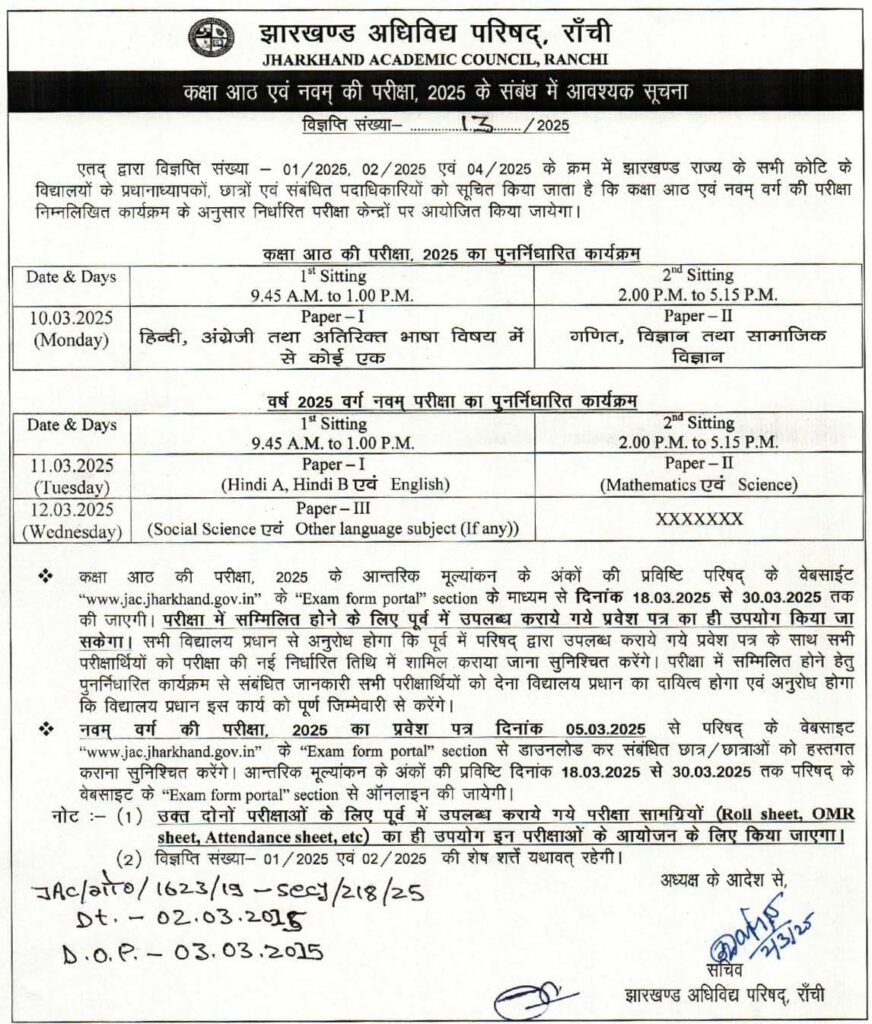 झारखण्ड अधिविद्य परिषद्, राँची
JHARKHAND ACADEMIC COUNCIL, RANCHI
कक्षा आठ एवं नवम् की परीक्षा, 2025 के संबंध में आवश्यक सूचना
विज्ञप्ति संख्या– ....................13........../2025
एतद् द्वारा विज्ञप्ति संख्या – 01/2025, 02/2025 एवं 04/2025 के क्रम में झारखण्ड राज्य के सभी कोटि के
विद्यालयों के प्रधानाध्यापकों, छात्रों एवं संबंधित पदाधिकारियों को सूचित किया जाता है कि कक्षा आठ एवं नवम् वर्ग की परीक्षा
निम्नलिखित कार्यक्रम के अनुसार निर्धारित परीक्षा केन्द्रों पर आयोजित किया जायेगा।
कक्षा आठ की परीक्षा, 2025 का पुनर्निधारित कार्यक्रम
Date & Days 1st Sitting 2nd Sitting
9.45 A.M. to 1.00 P.M. 2.00 P.M. to 5.15 P.M.
10.03.2025 Paper – I Paper – II
(Monday) हिन्दी, अंग्रेजी तथा अतिरिक्त भाषा विषय में गणित, विज्ञान तथा सामाजिक
से कोई एक विज्ञान
वर्ष 2025 वर्ग नवम् परीक्षा का पुनर्निधारित कार्यक्रम
Date & Days 1st Sitting 2nd Sitting
9.45 A.M. to 1.00 P.M. 2.00 P.M. to 5.15 P.M.
11.03.2025 Paper – I Paper – II
(Tuesday) (Hindi A, Hindi B एवं English) (Mathematics एवं Science)
12.03.2025 Paper – III XXXXXXX
(Wednesday) (Social Science एवं Other language subject (If any))
❖ कक्षा आठ की परीक्षा, 2025 के आन्तरिक मूल्यांकन के अंकों की प्रविष्टि परिषद् के वेबसाईट
“www.jac.jharkhand.gov.in” के “Exam form portal” section के माध्यम से दिनांक 18.03.2025 से 30.03.2025 तक
की जाएगी। परीक्षा में सम्मिलित होने के लिए पूर्व में उपलब्ध कराये गये प्रवेश पत्र का ही उपयोग किया जा
सकेगा। सभी विद्यालय प्रधान से अनुरोध होगा कि पूर्व में परिषद् द्वारा उपलब्ध कराये गये प्रवेश पत्र के साथ सभी
परीक्षार्थियों को परीक्षा की नई निर्धारित तिथि में शामिल कराया जाना सुनिश्चित करेंगे। परीक्षा में सम्मिलित होने हेतु
पुनर्निधारित कार्यक्रम से संबंधित जानकारी सभी परीक्षार्थियों को देना विद्यालय प्रधान का दायित्व होगा एवं अनुरोध होगा
कि विद्यालय प्रधान इस कार्य को पूर्ण जिम्मेवारी से करेंगे।
❖ नवम् वर्ग की परीक्षा, 2025 का प्रवेश पत्र दिनांक 05.03.2025 से परिषद् के वेबसाइट
“www.jac.jharkhand.gov.in” के “Exam form portal” section से डाउनलोड कर संबंधित छात्र/छात्राओं को हस्तगत
कराना सुनिश्चित करेंगे। आन्तरिक मूल्यांकन के अंकों की प्रविष्टि दिनांक 18.03.2025 से 30.03.2025 तक परिषद् के
वेबसाइट के “Exam form portal” section से ऑनलाइन की जायेगी।
नोट :– (1) उक्त दोनों परीक्षाओं के लिए पूर्व में उपलब्ध कराये गये परीक्षा सामग्रियों (Roll sheet, OMR
sheet, Attendance sheet, etc) का ही उपयोग इन परीक्षाओं के आयोजन के लिए किया जाएगा।
(2) विज्ञप्ति संख्या– 01/2025 एवं 02/2025 की शेष शर्त्तें यथावत् रहेगी।
अध्यक्ष के आदेश से,
JAC/गो०/1623/19 – Secy/218/25
Dt. – 02.03.2015
D.O.P. – 03.03.2015
2/3/25
सचिव
झारखण्ड अधिविद्य परिषद्, राँची